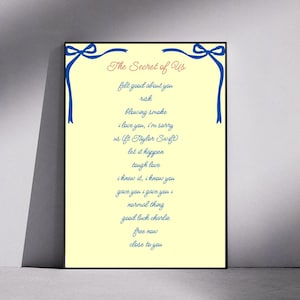 The Secret of Us
felt good about you
risk
blowing smoke
i love you, i'm sorry
us (ft Taylor Swift)
let it happen
tough love
i knew it, i know you
gave you i gave you i
normal thing
good luck charlie
free now
close to you